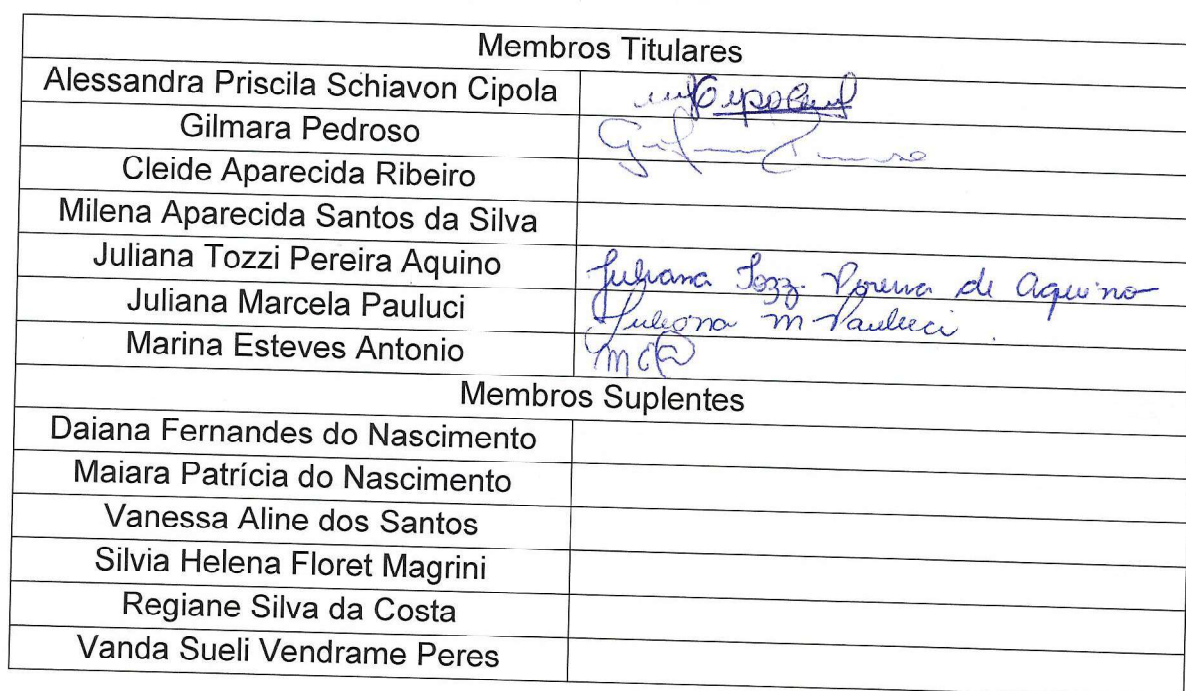 Membros Titulares
Alessandra Priscila Schiavon Cipola
Gilmara Pedroso
Cleide Aparecida Ribeiro
Milena Aparecida Santos da Silva
Juliana Tozzi Pereira Aquino Juliana Tozzi Pereira de Aquino
Juliana Marcela Pauluci Juliana M Pauluci
Marina Esteves Antonio
Membros Suplentes
Daiana Fernandes do Nascimento
Maiara Patrícia do Nascimento
Vanessa Aline dos Santos
Silvia Helena Floret Magrini
Regiane Silva da Costa
Vanda Sueli Vendrame Peres